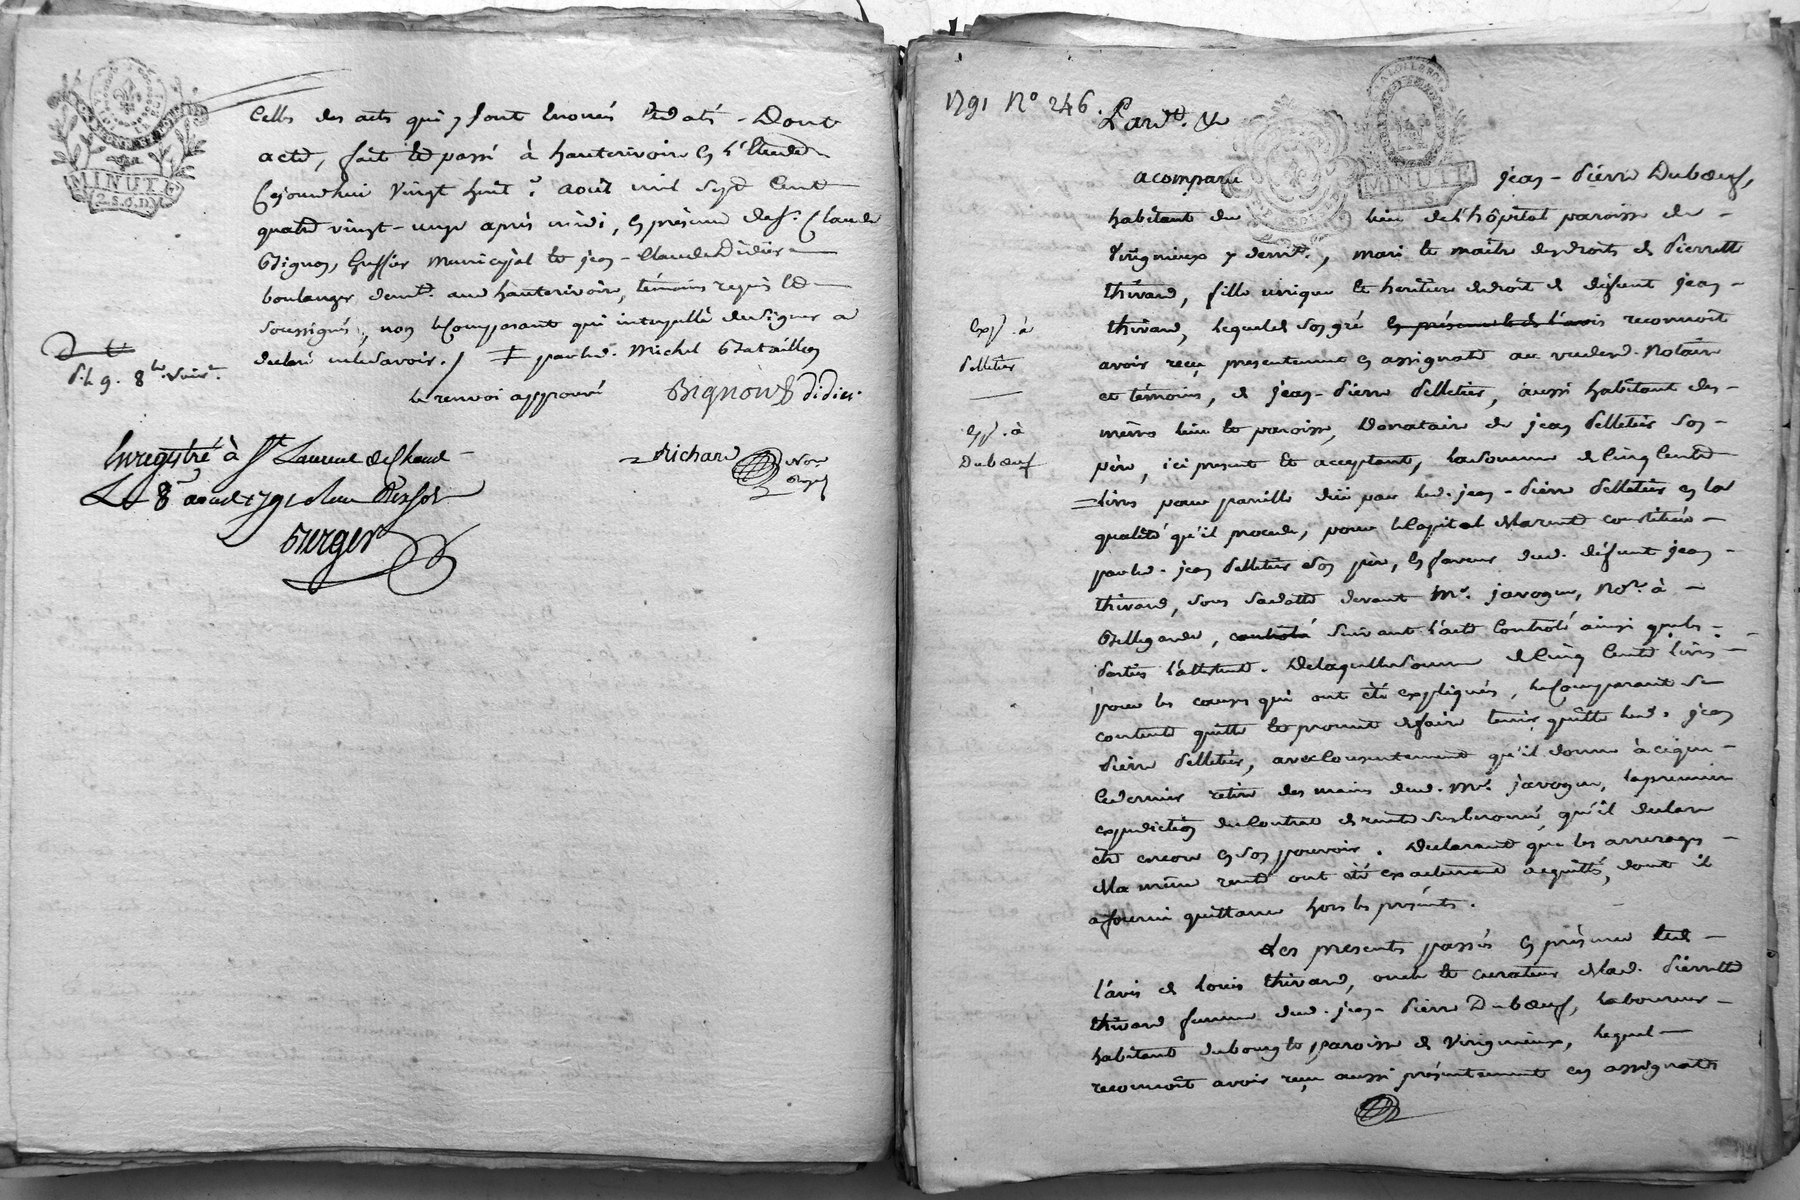 MINUTE
2.s.6.D
Celles des acts qui y sont énoncés & datés - Dont
acte, fait et passé à hauterivoire en l'Etude
Cejourdhui vingt huit aout mil sept Cent
quatre vingt-onze après midi, en présence de S.r Claude
Bignon, Greffier municipal et jean-Claude Didier
boulanger demt. aud hauterivoire, témoins requis et
soussignés, non le Comparant qui interpellé de signer a
déclaré ne le savoir. / par led. Michel Bataillon
le renvoi approuvé
Bignon Didier
Richard Nore
Enregistré à St Laurent de Cham
Le 8 1791
Berger
1791 N° 246.
Pardt. &
MINUTE
a comparu jean-Pierre Duboeuf,
habitant du lieu de l'hôpital paroisse de
Virignieux y demt., mari et maitre des droits de Pierrette
thivard, fille unique et heritiere de droit de défunt jean
thivard, lequel de son gré en présence et de l'avis reconnoit
avoir reçu presentement en assignats au vu desd. Notaire
et témoins, de jean-Pierre Pelletier, aussi habitant des
mêmes lieu et paroisse, Donataire de jean Pelletier son
père, ici present et acceptant, la somme de Cinq Cents
livres pour pareille düe par led. jean-Pierre Pelletier en la
qualité qu'il procede, pour le Capital de la rente constituée
par led. jean Pelletier son père, en faveur dud. défunt jean
thivard, sous sa datte devant Me. javogue, Nore. à
Bellegarde, controlé suivant l'acte Controlé ainsi que les
parties l'attestent. De laquelle somme de Cinq Cents livres
pour les causes qui ont été expliquées, le Comparant se
contente quitte et promet de faire tenir quitte led. jean
Pierre Pelletier, avec Consentement qu'il donne à ce que
ce dernier retire des mains dud. Me. javogue, la premiere
expedition du Contrat de rente susenoncé, qu'il declare
etre encore en son pouvoir. Declarant que les arrerages
de la même rente ont été exactement acquittés, dont il
a fourni quittance hors les présentes.
Les presentes passés en présence et de
l'avis de Louis thivard, oncle et curateur de lad. Pierrette
thivard femme dud. jean-Pierre Duboeuf, laboureur
habitant du bourg et paroisse de Virignieux, lequel
reconnoit avoir reçu aussi présentement en assignats
Exp. à
Pelletier
Exp. à
Duboeuf